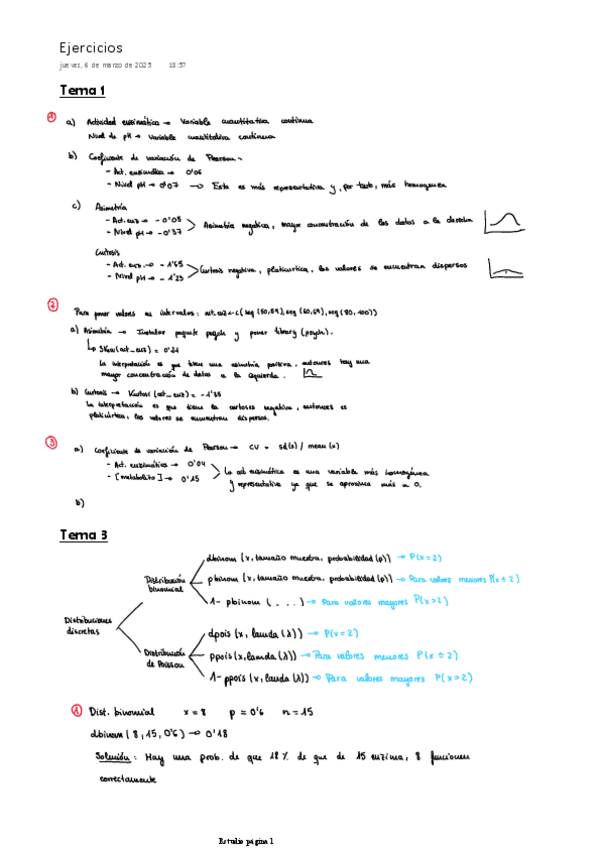 Ejercicios
jueves, 6 de marzo de 2025 18:57
Tema 1
① a) Actividad enzimática → Variable cuantitativa continua
Nivel de pH → Variable cuantitativa continua
b) Coeficiente de variación de Pearson:
- Act. enzimática → 0'06
- Nivel pH → 0'07 → Este es más representativa y, por tanto, más homogenea
c) Asimetría
- Act. enz → - 0'08
- Nivel pH → - 0'37
Asimetría negativa, mayor concentración de los datos a la derecha
Curtosis
- Act. enz. → - 1'65
- Nivel pH → - 1'25
Curtosis negativa, platicúrtica, los valores se encuentran dispersos
② Para poner valores en intervalos: act.enz <- c(seq (50,64), seq (60,69), seq (80,100))
a) Asimetría → Instalar paquete psych y poner library (psych).
↳ Skew (act_enz) = 0'24
La interpretación es que tiene una asimetría positiva, entonces hay una
mayor concentración de datos a la izquierda.
b) Curtosis → Kurtosi (act_enz) = - 1'38
La interpretación es que tiene la curtosis negativa, entonces es
platicúrtica, los valores se encuentran dispersos.
③ a) Coeficiente de variación de Pearson → CV = sd(x) / mean (x)
- Act. enzimática → 0'04
- [metabolito] → 0'15
La act enzimática es una variable más homogénea
y representativa ya que se aproxima más a 0.
b)
Tema 3
Distribuciones
discretas
Distribución
binomial
dbinom (x, tamaño muestra, probabilidad (p)) → P(x = 2)
pbinom (x, tamaño muestra, probabilidad (p)) → Para valores menores P(x ≤ 2)
1- pbinom (...) → Para valores mayores P(x > 2)
Distribución
de Poisson
dpois (x, lamda (λ)) → P(x=2)
ppois (x, lamda (λ)) → Para valores menores P(x ≤ 2)
1- ppois (x, lamda (λ)) → Para valores mayores P(x > 2)
① Dist. binomial x = 8 p = 0'6 n = 15
dbinom (8, 15, 0'6) → 0'18
Solución: Hay una prob. de que 18 % de que de 15 enzima, 8 funcionen
correctamente
Estudio página 1